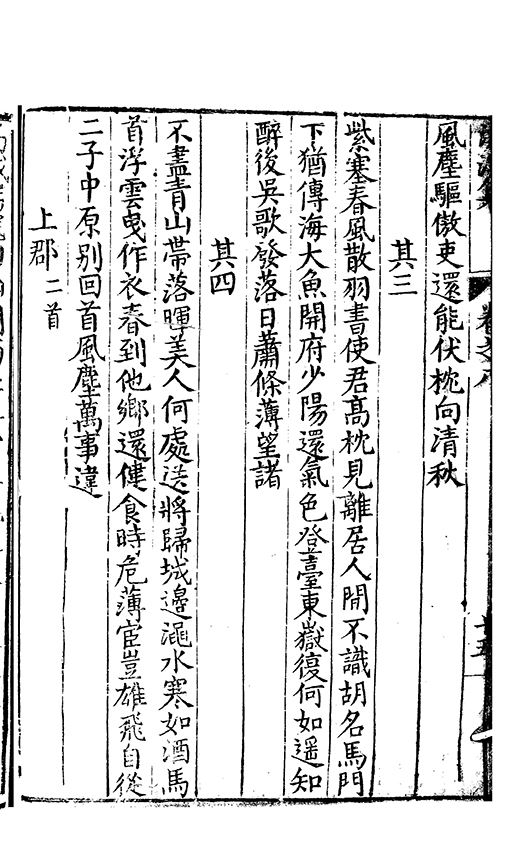 風塵驅傲吏還能伏枕向清秋
其三
紫塞春風散羽書使君髙枕見離居人間不識胡名馬門
下猶傳海大魚開府少陽還氣色登臺東嶽復何如遥知
醉後吳歌發落日蕭條薄望諸
其四
不盡青山帶落暉美人何處送將歸城邊澠水寒如酒馬
首浮雲曳作衣春到他鄉還健食時危薄宦豈雄飛自從
二子中原别回首風塵萬事違
上郡二首